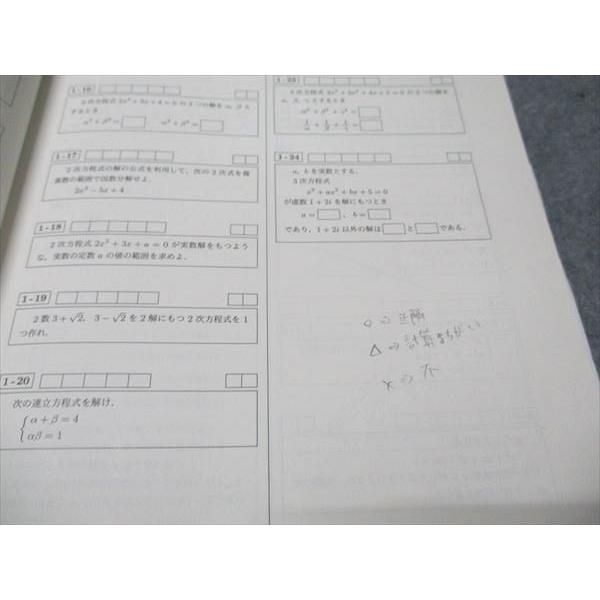 1-16
2次方程式 2x²+3x+4=0 の2つの解を α, β と
するとき
α²+β²=□ α³+β³=□
1-17
2次方程式の解の公式を利用して，次の2次式を複
素数の範囲で因数分解せよ．
2x²−5x+4
1-18
2次方程式 2x²+3x+a=0 が実数解をもつよう
な，実数の定数 a の値の範囲を求めよ．
1-19
2数 3+√2，3−√2 を2解にもつ2次方程式を1
つ作れ．
1-20
次の連立方程式を解け．
α+β=4
αβ=1
1-23
とするとき
α²+β²+γ²=□
1/α+1/β+1/γ=□
1-24
a, b を実数とする．
3次方程式
x³+ax²+bx+5=0
が虚数 1+2i を解にもつとき
a=□，b=□
であり，1+2i 以外の解は□と□である．
○⇒正解
△⇒計算まちがい
×⇒